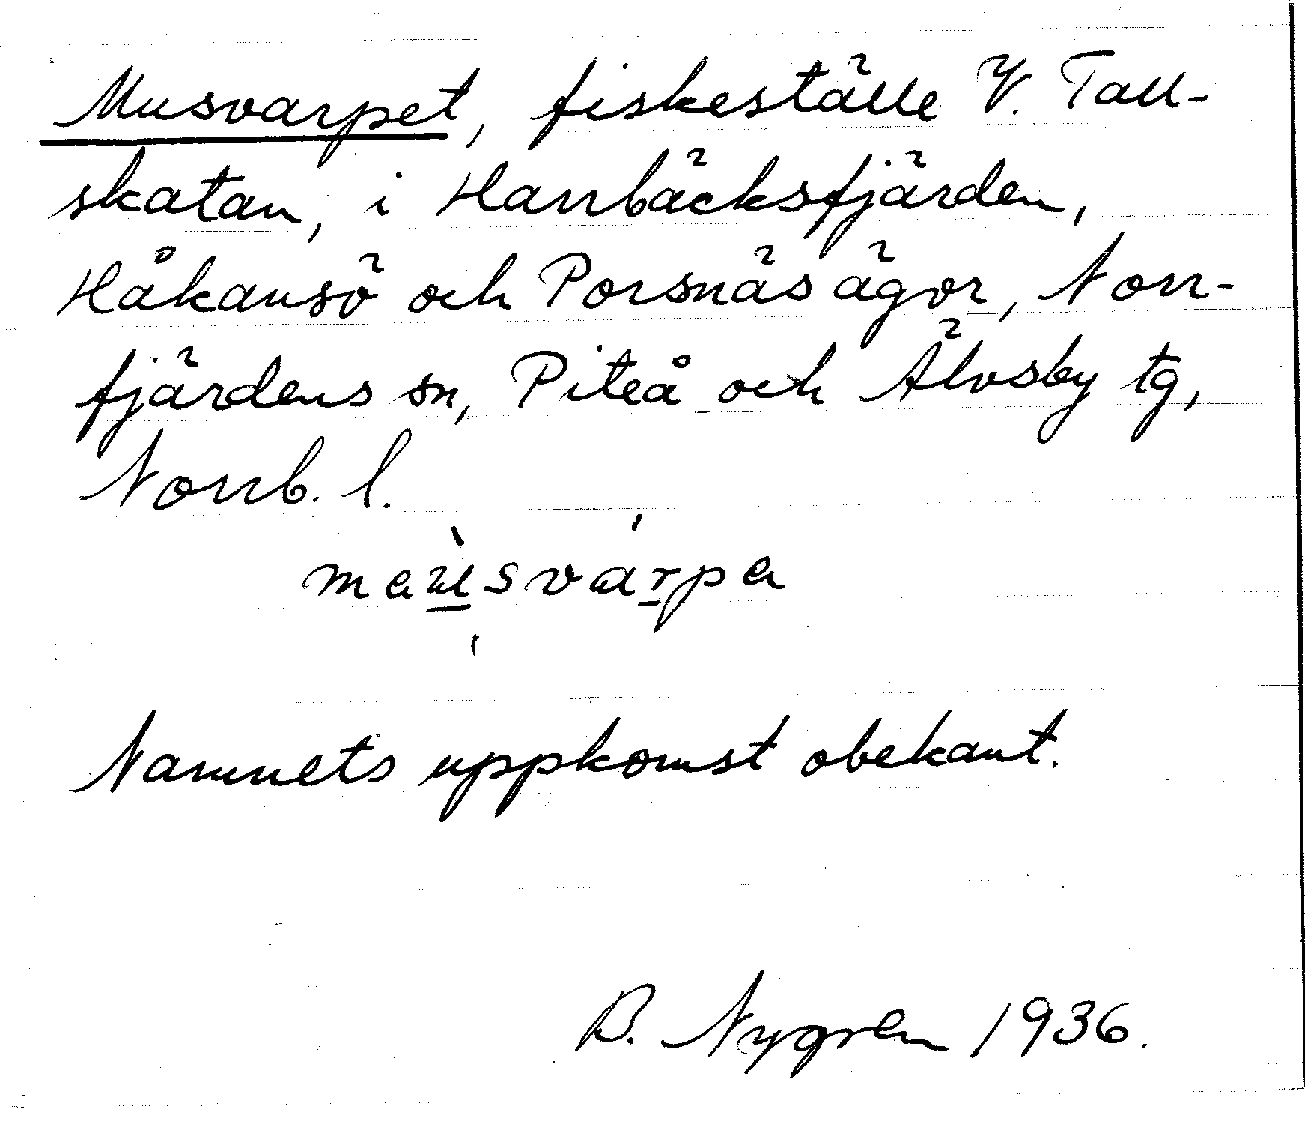 Musvarpet, fiskeställe V. Tall-
skatan, i Harrbäcksfjärden,
Håkansö och Porsnäs ägor, Norr-
fjärdens sn, Piteå och Älvsby tg,
Norrb. l.
Namnets uppkomst obekant.
B. Nygren 1936.